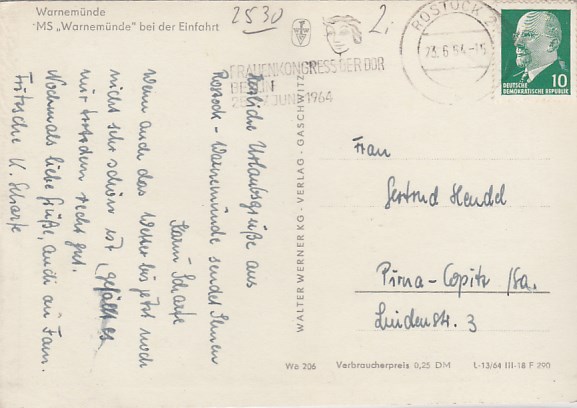 Warnemünde
MS „Warnemünde" bei der Einfahrt
2530
2.
FRAUENKONGRESS DER DDR
BERLIN
JUNI 1964
ROSTOCK 2
23.6.64-15
10
DEUTSCHE
DEMOKRATISCHE REPUBLIK
Herzliche Urlaubsgrüße aus
Rostock-Warnemünde sendet Ihnen
Karin Scharfe
Wenn auch das Wetter bis jetzt noch
nicht sehr schön ist, gefällt es
mir trotzdem recht gut.
Nochmals liebe Grüße, auch an Fam.
Fritzsche K. Scharfe
WALTER WERNER KG · VERLAG · GASCHWITZ
Frau
Gertrud Hendel
Pirna-Copitz /Sa.
Lindenstr. 3
Wb 206 Verbraucherpreis 0,25 DM L-13/64 III-18 F 290